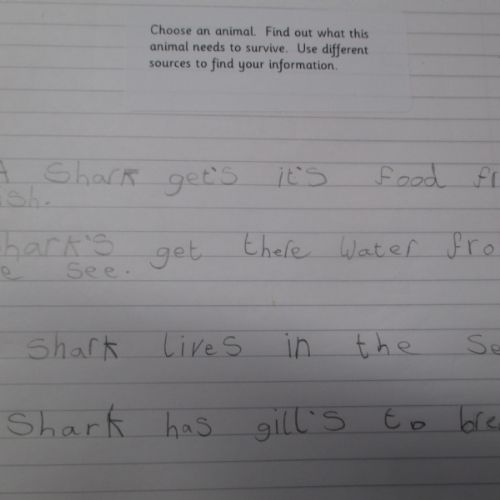 Choose an animal. Find out what this
animal needs to survive. Use different
sources to find your information.
A Shark get's it's food fr
ish.
hark's get there water fro
e see.
Shark lives in the Se
Shark has gill's to bre